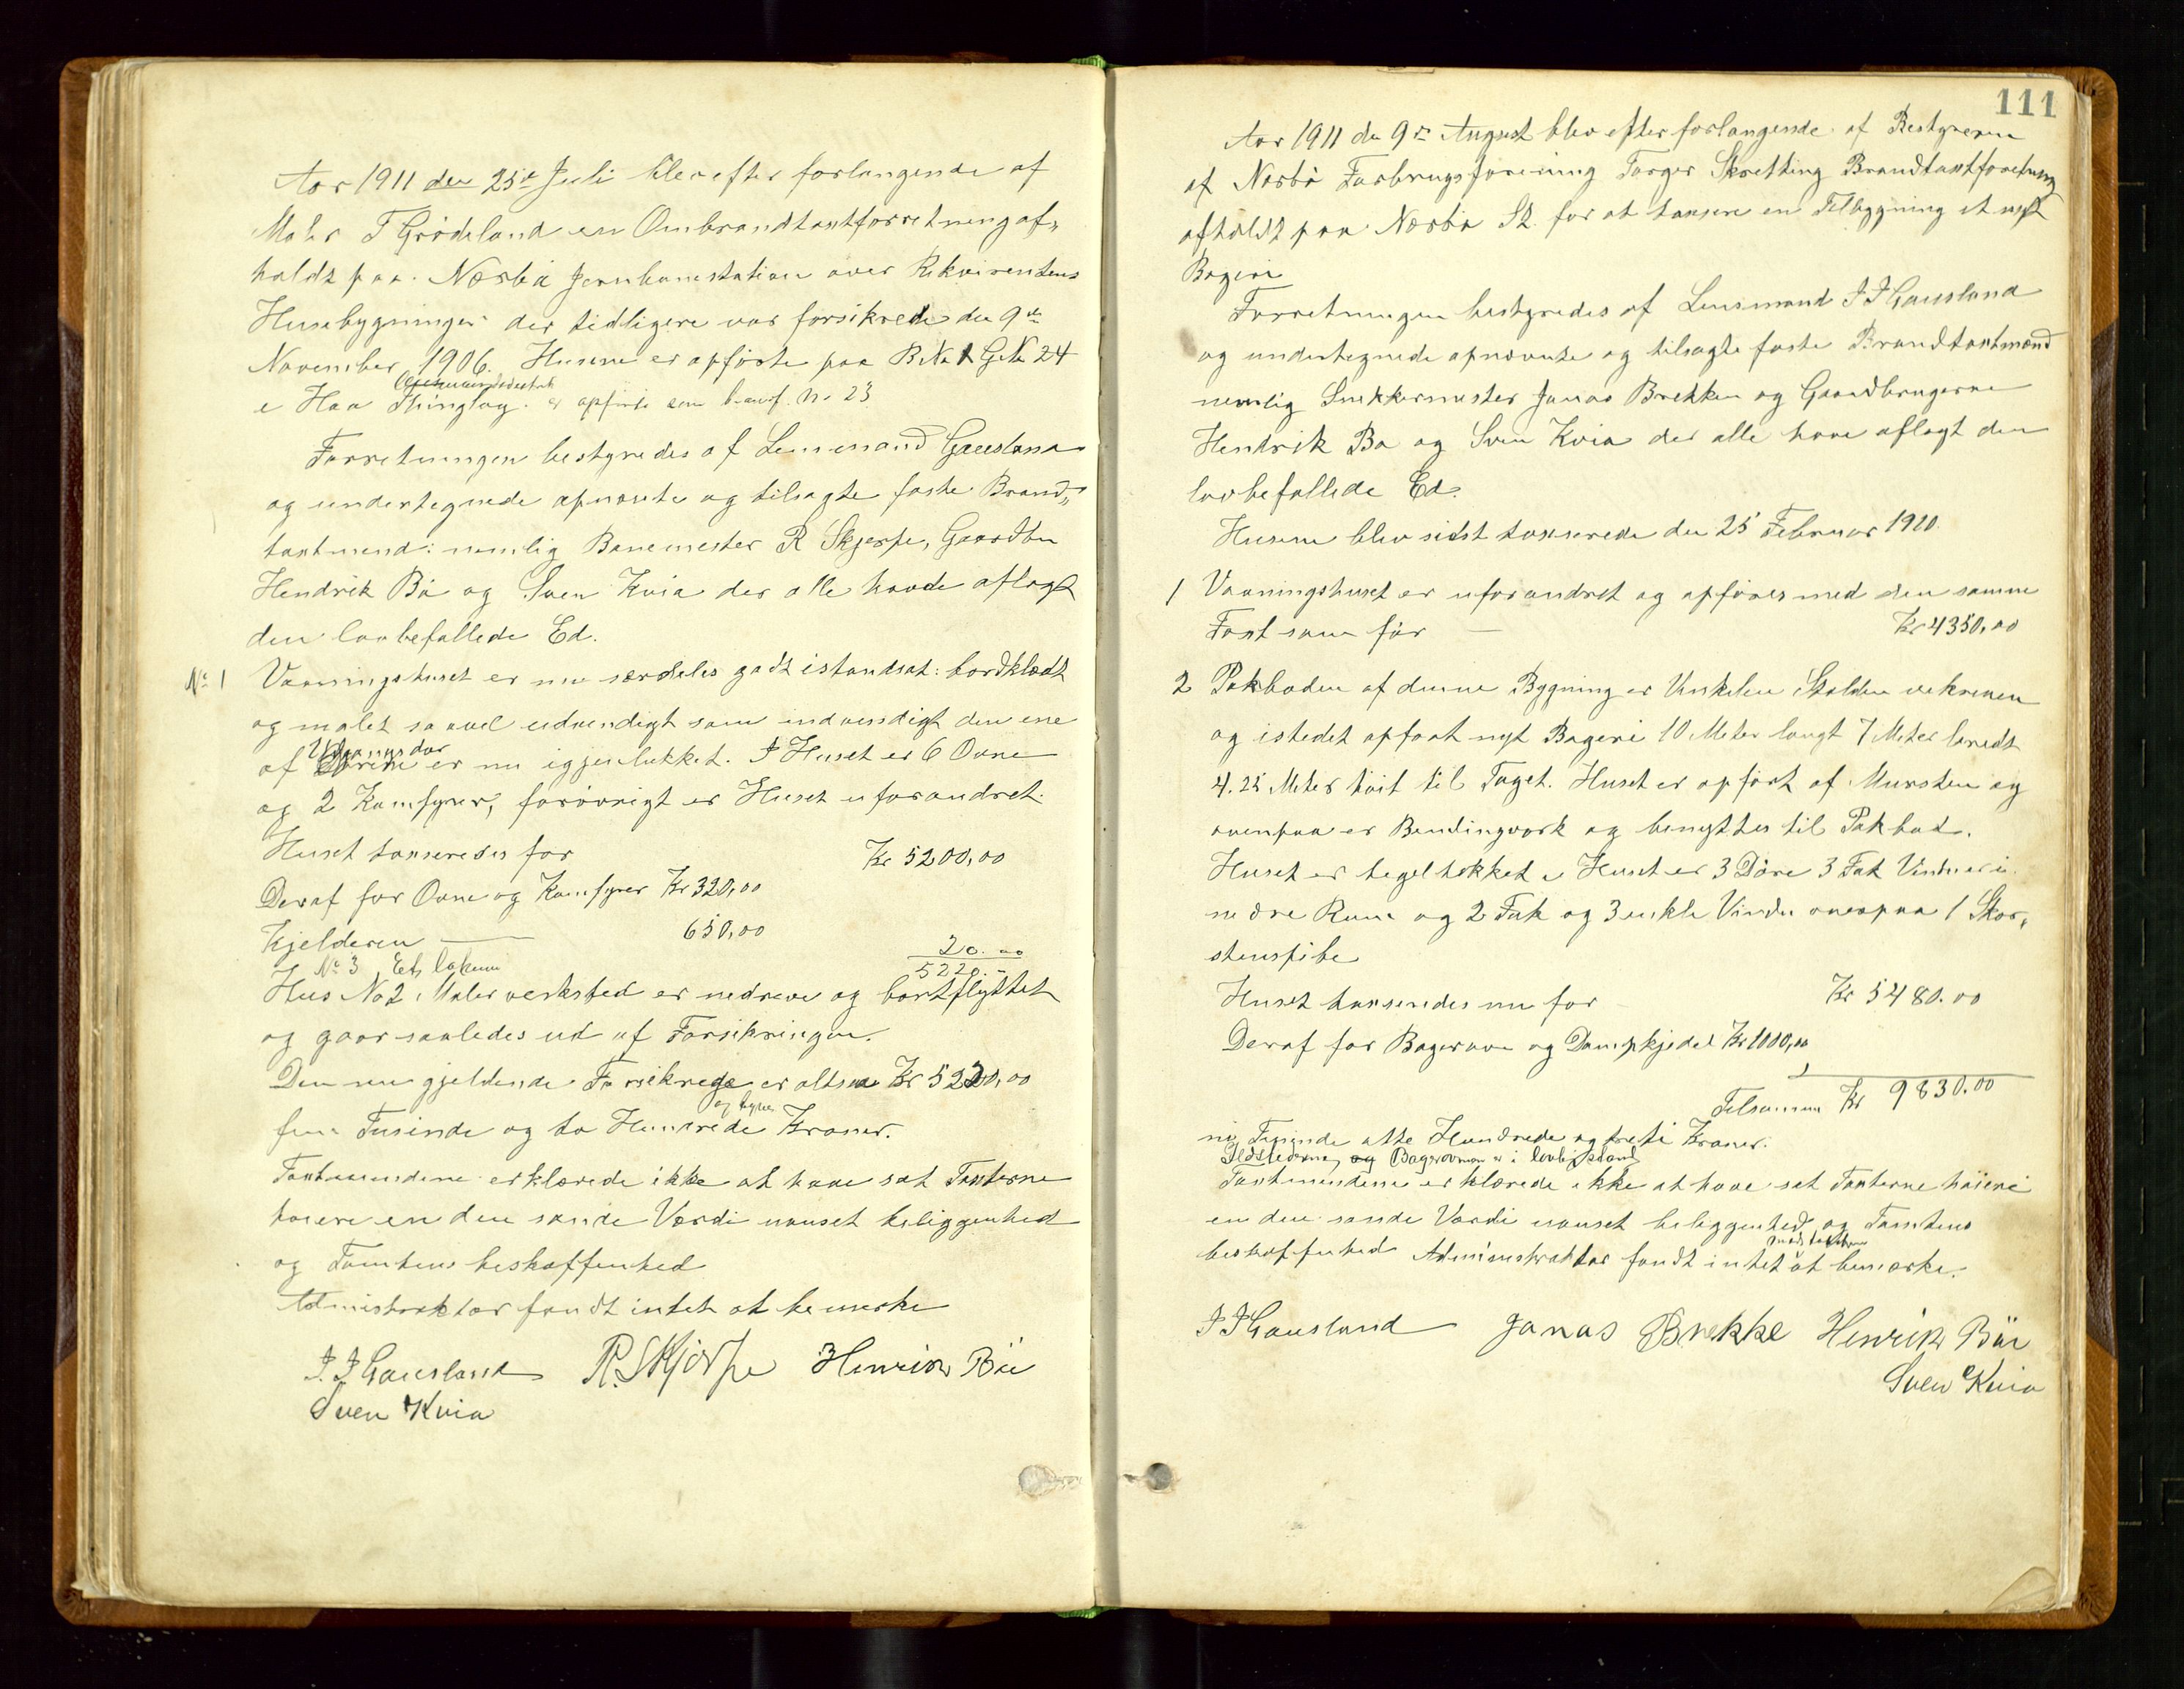 Aar 1911 den 25de Juli blev efter forlangende af
Maler T Grødeland en Ombrandtaxtforretning af„
holdt paa Nærbø Jernbanestation over Rekvirentens
Husebygninger der tidligere var forsikrede den 9de
November 1906. Husene er opførte paa B.No 1 G.No 24
i Haa Thinglag. er opførte som brandf. No 23
Forretningen bestyredes af Lensmand Gausland
og undertegnede opnævnte og tilsagte faste Brand„
taxtmænd: nemlig Banemester R Skjerpe, Gaardbr
Hendrik Bø og Sven Kvia der alle havde aflagt
den lovbefallede Ed.
No 1 Vaaningshuset er nu særdeles godt istandsat: bordklædt
og malet saavel udvendigt som indvendigt den ene
af Udgangsdør er nu igjenlukket. I Huset er 6 Ovne
og 2 Komfyrer, forøvrigt er Huset uforandret.
Huset taxeredes for Kr 5200,00
Deraf for Ovne og Komfyrer Kr 320,00
Kjelderen — 650,00
No 3 Et lokum 20.00
5220.-
Hus No 2 Malerverksted er nedreve og bortflyttet
og gaar saaledes ud af Forsikringen.
Den nu gjeldende Forsikrings er altsaa Kr 5220,00
fem Tusinde og to Hundrede og tyve Kroner.
Taxtmændene erklærede ikke at have sat Taxterne
høiere en den sande Værdi uanset beliggenhed
og Tomtens beskaffenhed
Administraktor fandt intet at bemerke
J. J Gausland R. Skjerpe Henrik Bø
Sven Kvia
111
Aar 1911 den 9de August blev efter forlangende af Bestyreren
af Nærbø Forbrugsforening Torger Skretting Brandtaxtforetning
afholdt paa Nærbø St. for at taxsere en Tilbygning et nyt
Bageri
Forretningen bestyredes af Lensmand J J Gausland
og undertegnede opnævnte og tilsagte faste Brandtaxtmænd
nemlig Snekkermester Jonas Brekken og Gaardbrugerne
Hendrik Bø og Sven Kvia der alle have aflagt den
lovbefallede Ed.
Husene blev sidst taxserede den 25 Februar 1910.
1 Vaaningshuset er uforandret og opføres med den samme
Taxt som før — Kr 4350,00
2 Pakboden af denne Bygning er Vinkelen Stolden nedreven
og istedet opført nyt Bageri 10 Meter langt 7 Meter bredt
4.25 Meter høit til Taget. Huset er opført af Mursten og
ovenpaa er Bendingverk og benyttes til Pakbod.
Huset er tegeltekket i Huset er 3 Døre 3 Fak Vinduer i
nedre Rum og 2 Fak og 3 enkle Vindu ovenpaa 1 Skor„
stenspibe
Huset taxseredes nu for Kr 5480.00
Deraf for Bagerovn og Dampkjedel Kr 1000,00
Tilsammen Kr 9830.00
ni Tusinde otte Hundrede og treti Kroner.
Ildstederne og Bagerovnen er i lovlig stand
Taxtmændene erklærede ikke at have sat Taxterne høiere
en den sande Værdi uanset beliggenhed og Tomtens
beskaffenhed Administraktor fandt intet mod taksterne at bemærke.
J J Gausland Jonas Brekke Henrik Bø
Sven Kvia